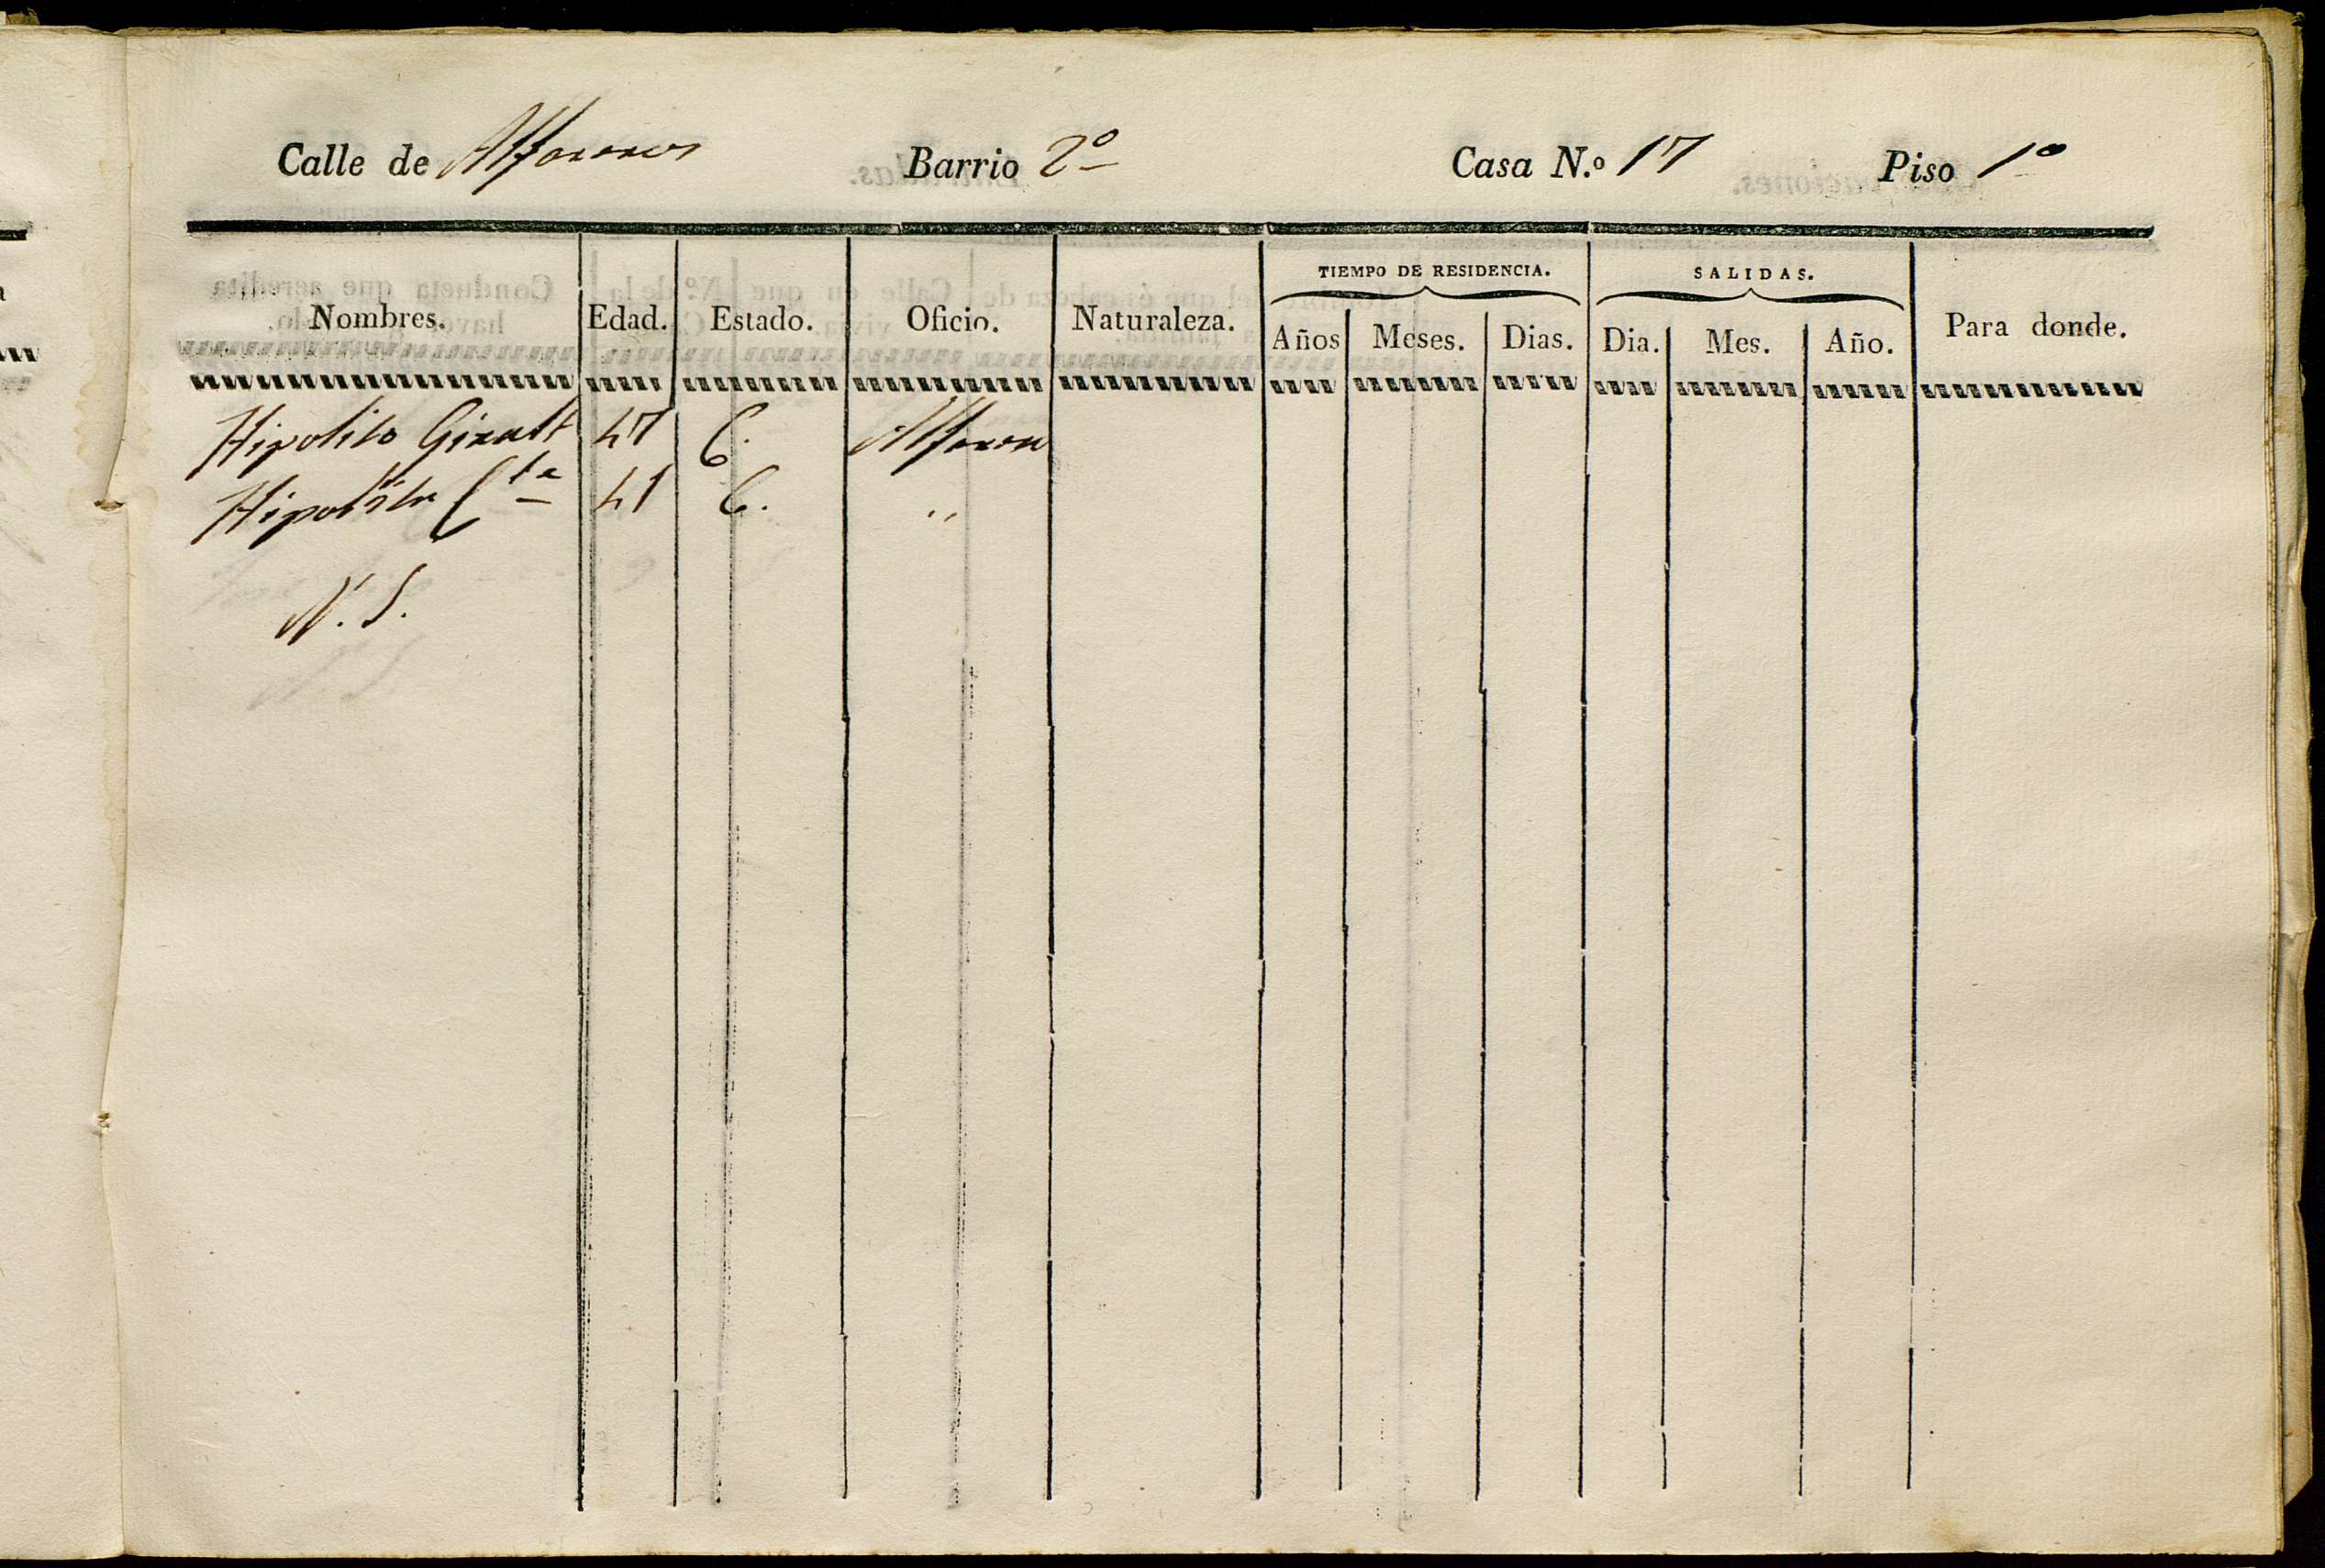 Calle de Alfareros Barrio 2º Casa N.º 17 Piso 1º
TIEMPO DE RESIDENCIA. SALIDAS.
Nombres. Edad. Estado. Oficio. Naturaleza. Años Meses. Dias. Dia. Mes. Año. Para donde.
Hipolito Giralt 47 C. Alfarero
Hipolita 41 C. "
N. S.